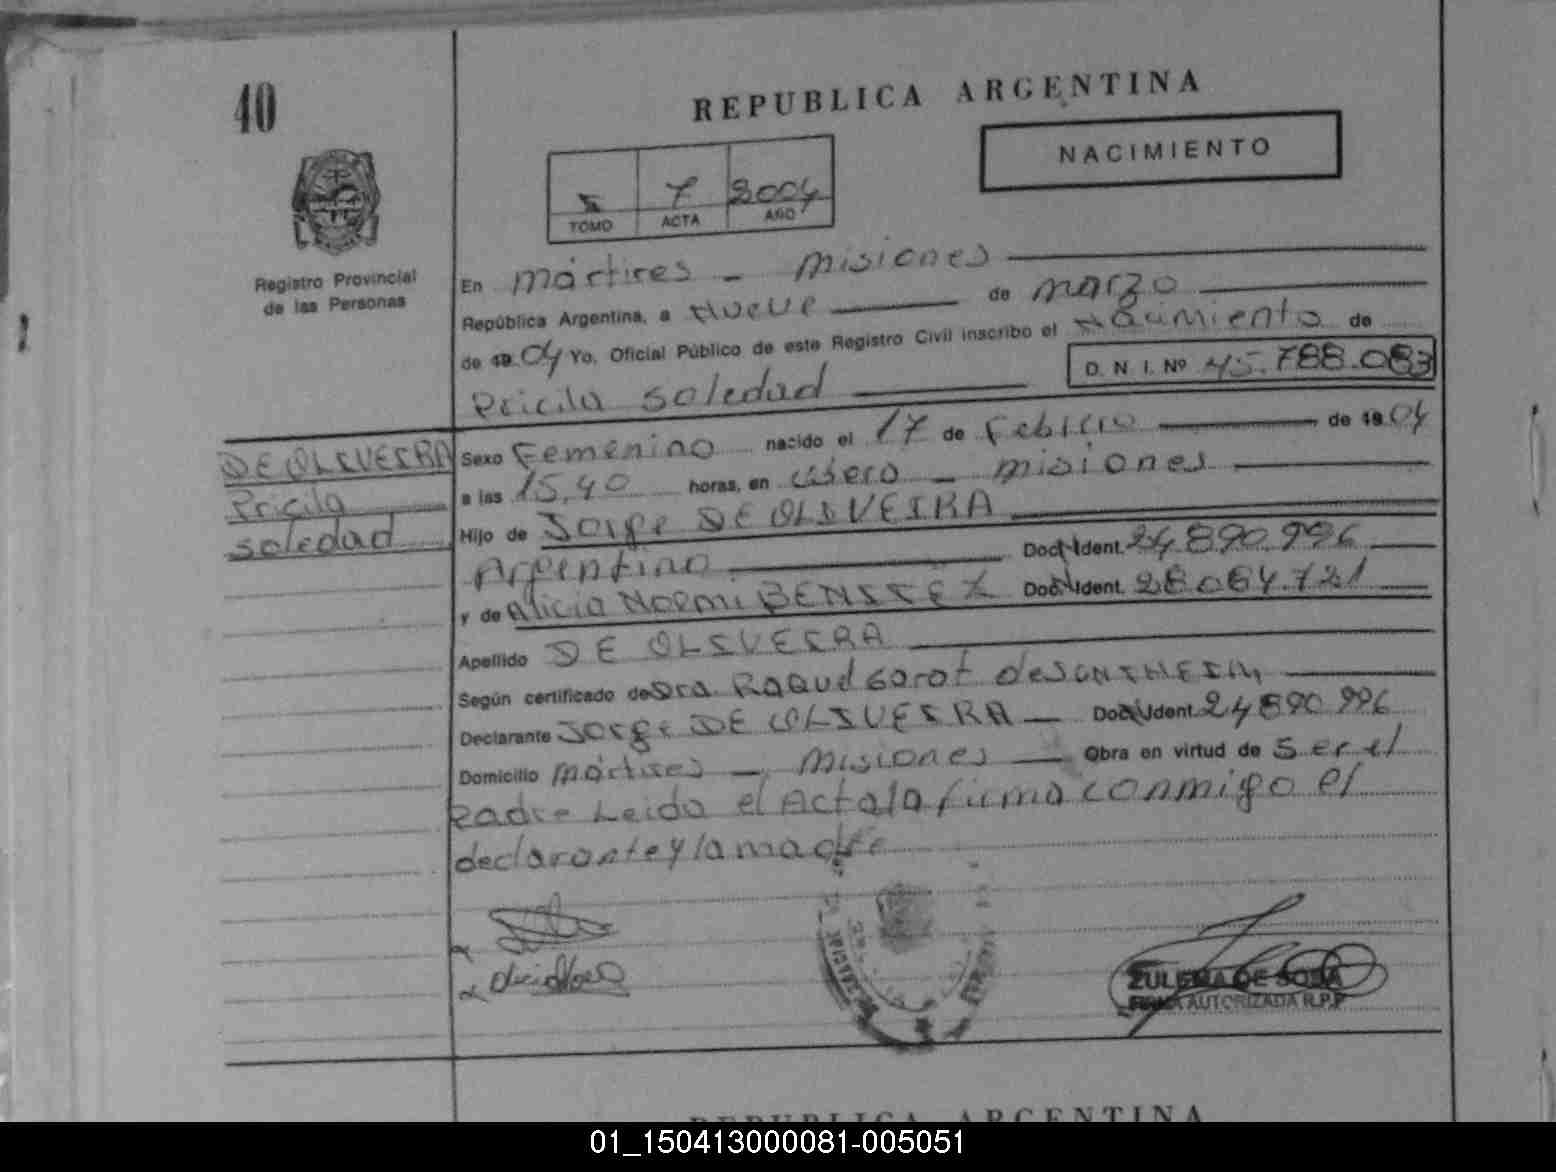 40
REPUBLICA ARGENTINA
NACIMIENTO
I 7 2004
TOMO ACTA AÑO
Registro Provincial
de las Personas
En Mártires - Misiones
República Argentina, a Nueve de Marzo
de 19 04 Yo, Oficial Público de este Registro Civil inscribo el Nacimiento de
D. N. I. Nº 45.788.083
Pricila Soledad
DE OLIVEIRA
Pricila
Soledad
Sexo Femenino nacido el 17 de Febrero de 19 04
a las 15,40 horas, en - Misiones
Hijo de Jorge DE OLIVEIRA
Argentino Doc. Ident. 24.890.996
y de Alicia Noemi BENITEZ Doc. Ident. 28.064.721
Apellido DE OLIVEIRA
Según certificado de Dra. Raquel Garot de
Declarante Jorge DE OLIVEIRA - Doc. Ident. 24.890.996
Domicilio Mártires - Misiones - Obra en virtud de Ser el
Padre Leida el Acta la firma conmigo el
declarante y la madre
ZULEMA DE SOSA
FIRMA AUTORIZADA R.P.P
REPUBLICA ARGENTINA
01_150413000081-005051